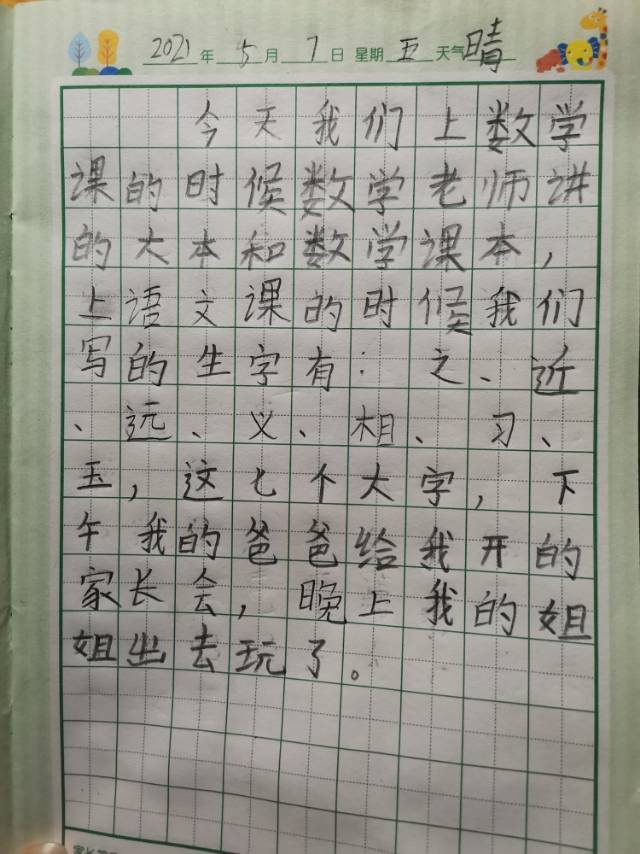 2021年5月7日 星期五天气晴
今天我们上数学
课的时候数学老师讲
的大本和数学课本，
上语文课的时候我们
写的生字有：之、近
、远、义、相、习、
玉，这七个大字，下
午我的爸爸给我开的
家长会，晚上我的姐
姐出去玩了。